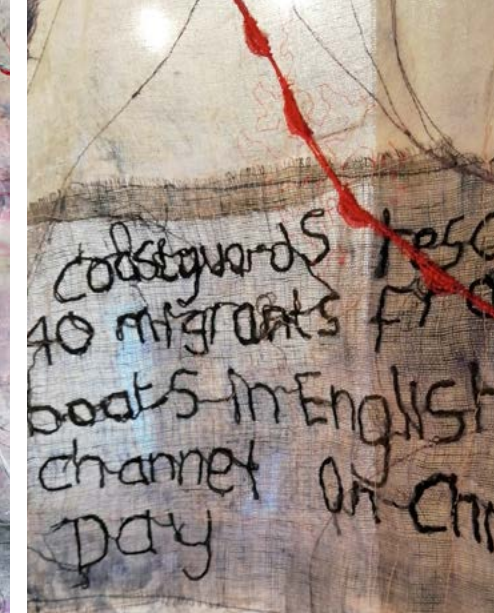 coastguards resc
40 migrants fro
boats in English
channel on Chr
Day